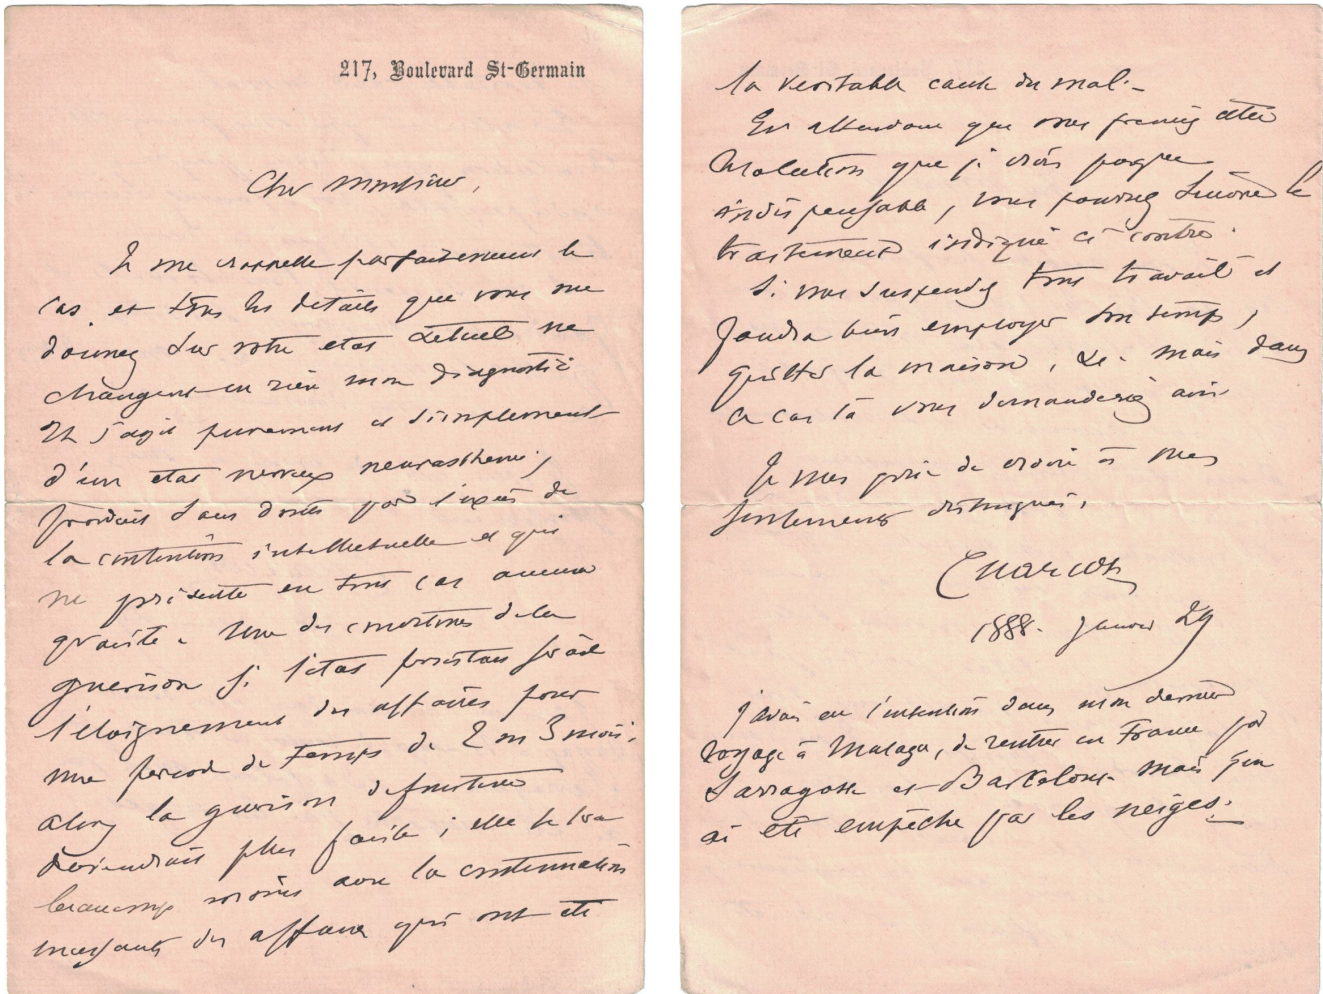 217, Boulevard St-Germain
Cher Monsieur,
Je me rappelle parfaitement le
cas et tous les details que vous me
donnez sur votre etat actuel ne
changent en rien mon diagnostic
Il s'agit purement et simplement
d'un etat nerveux neurasthenic,
produit sans doute par l'excès de
la contention intellectuelle et qui
ne présente en tous cas aucune
gravité. Une des conditions de la
guerison si l'etat persistait serait
l'éloignement des affaires pour
une periode de temps de 2 ou 3 mois;
alors la guerison definitive
deviendrait plus facile; elle le sera
beaucoup moins avec la continuation
des affaires qui ont été
la veritable cause du mal.-
En attendant que vous preniez cette
que je crois presque
indispensable, vous pourrez suivre le
traitement indiqué ci contre.
Si vous suspendez tout travail il
faudra bien employer son temps,
quitter la maison, &. mais dans
ce cas là vous demanderiez avis
Je vous prie de croire à mes
sentiments distingués.
Charcot
1888. Janvier 29
J'avais eu l'intention dans mon dernier
voyage à Malaga, de rentrer en France par
Sarragosse et Barcelone mais j'en
ai été empêché par les neiges.